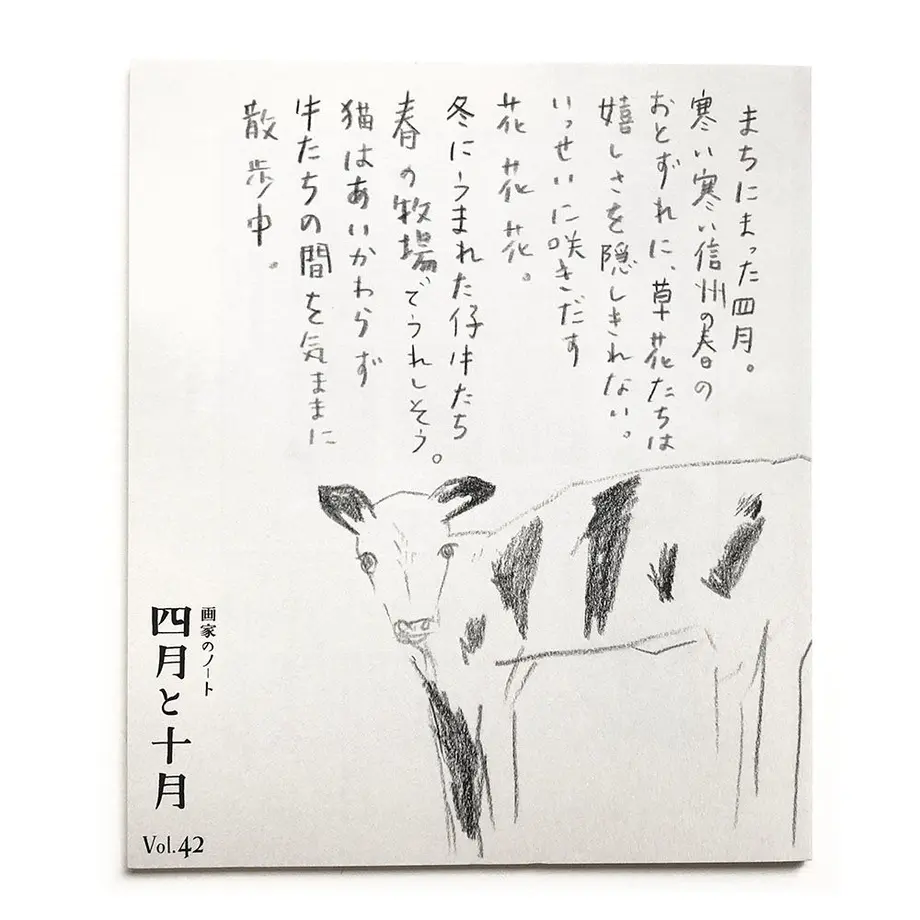 まちにまった四月。
寒い寒い信州の春の
おとずれに、草花たちは
嬉しさを隠しきれない。
いっせいに咲きだす
花花花。
冬にうまれた仔牛たち
春の牧場でうれしそう。
猫はあいかわらず
牛たちの間を気ままに
散歩中。
画家のノート
四月と十月
Vol.42